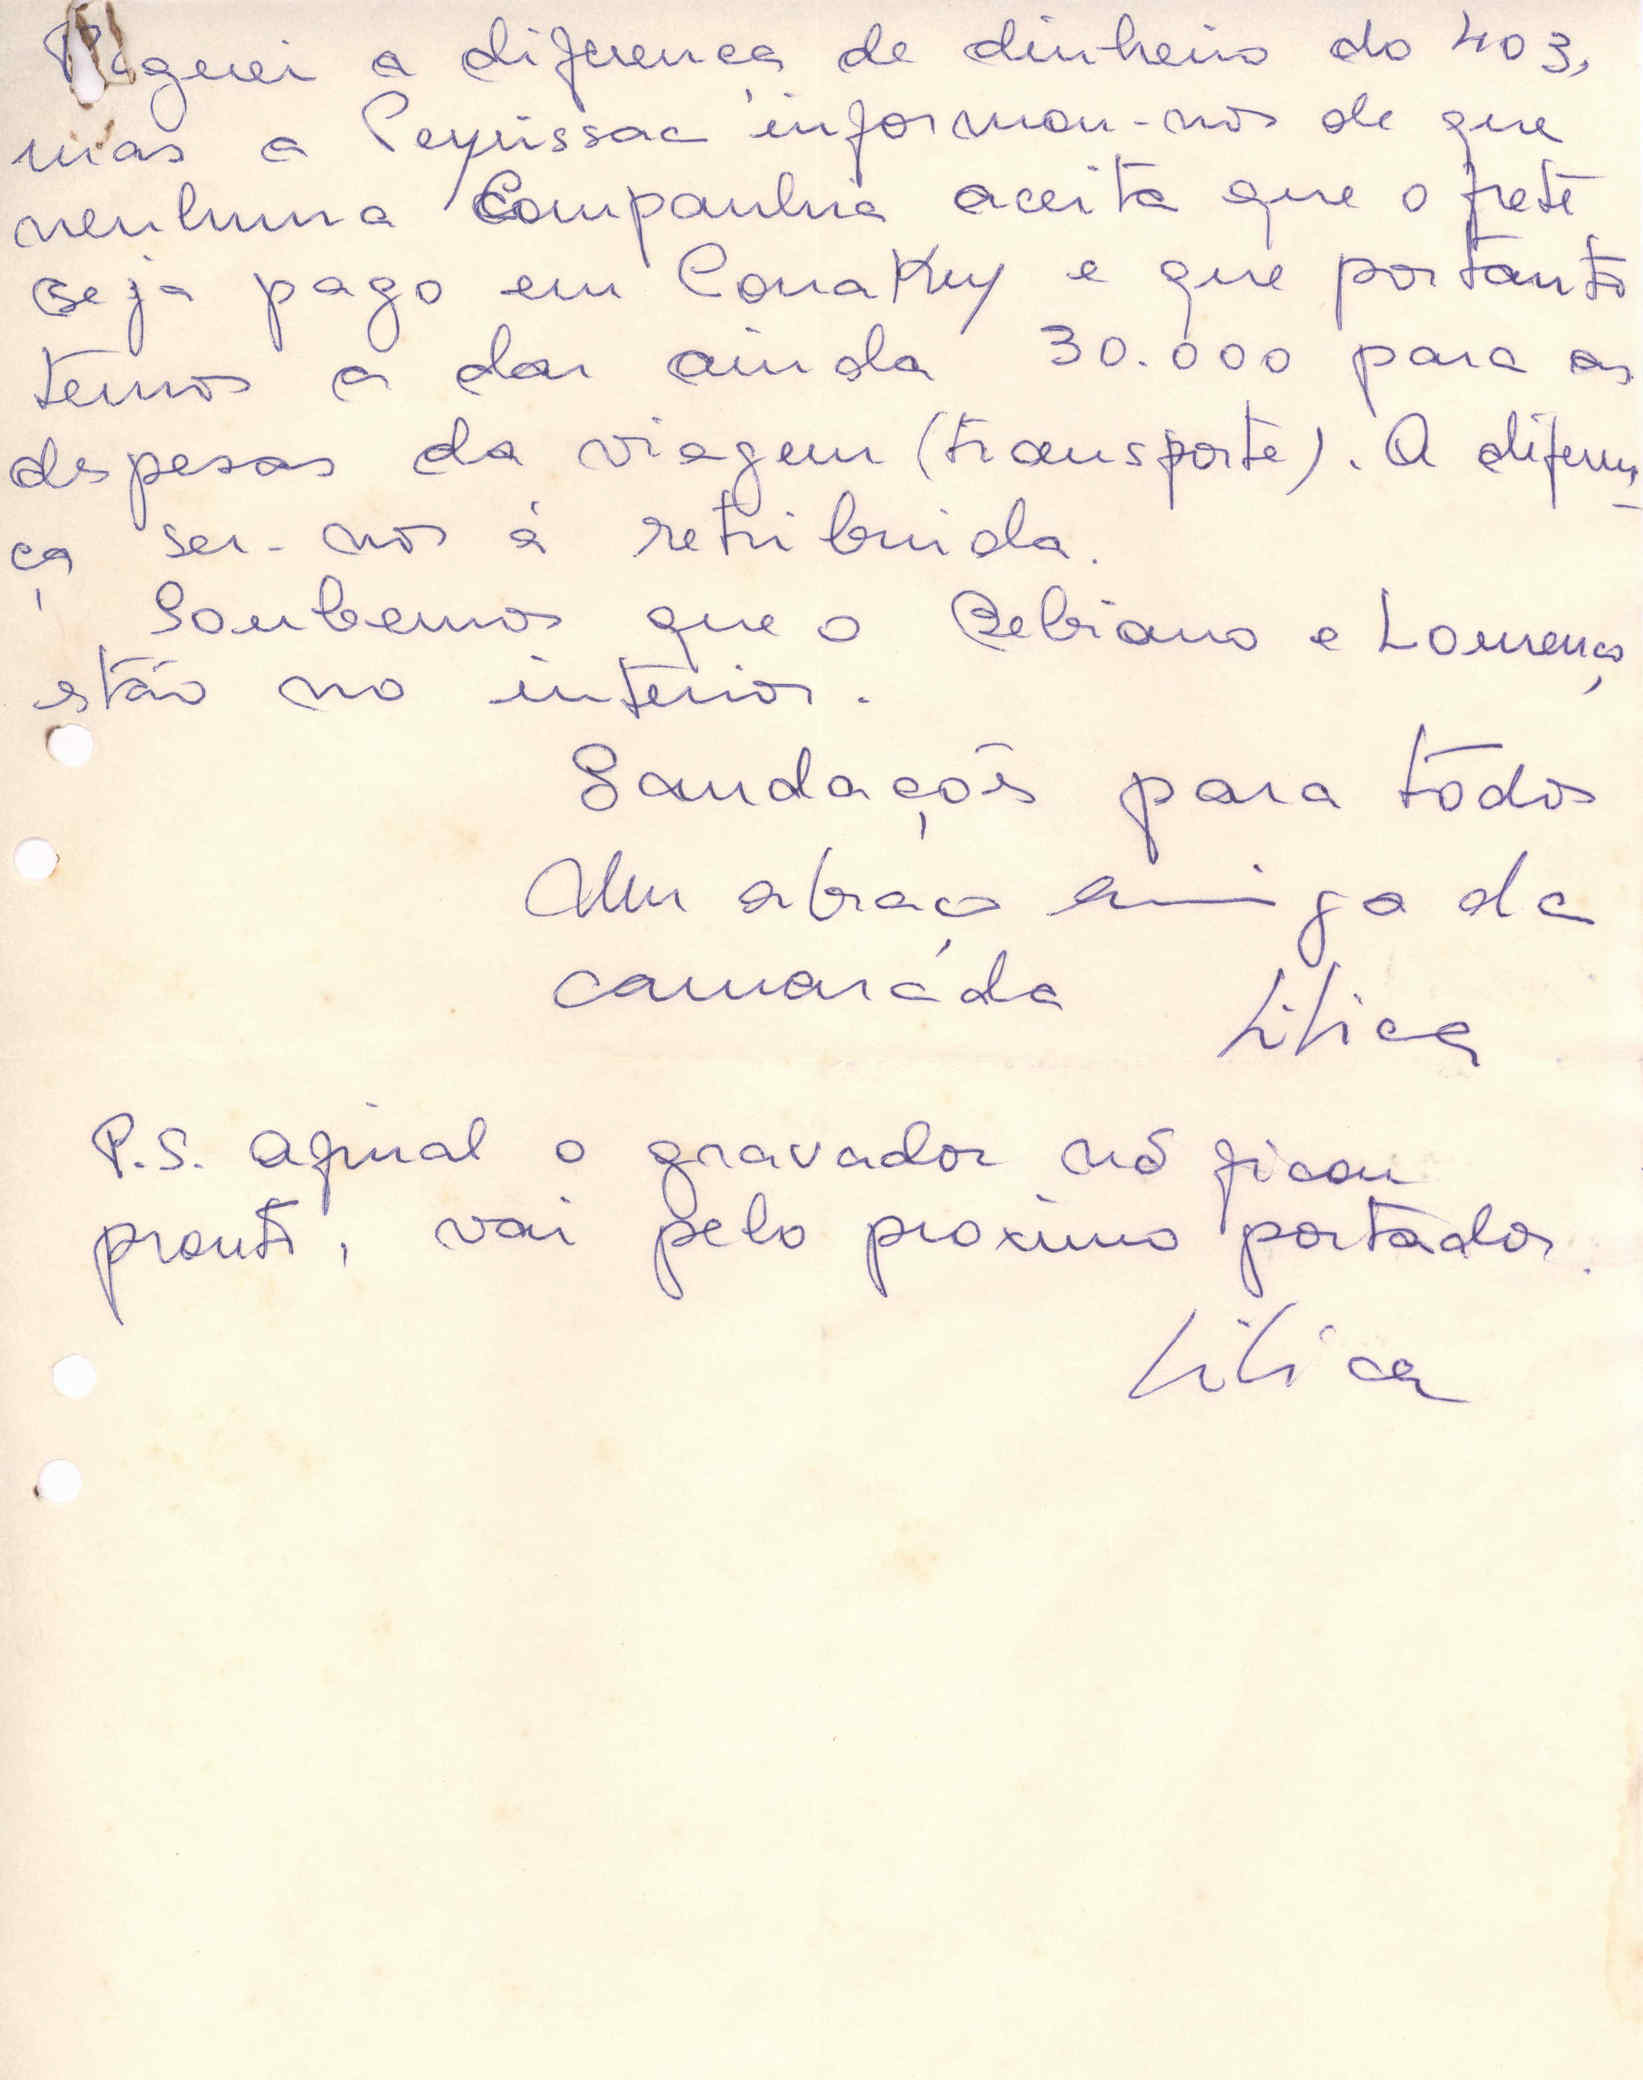 Paguei a diferença de dinheiro do 403,
mas a Peyrissac informou-nos de que
nenhuma Companhia aceita que o frete
seja pago em Conakry e que portanto
temos a dar ainda 30.000 para as
despesas da viagem (transporte). A diferen-
ça ser-nos á retribuida.
Soubemos que o Bebiano e Lourenço
estão no interior.
Saudações para todos
Um abraço amigo da
camarada Lilica
P.S. Afinal o gravador nõ ficou
pronto, vai pelo proximo portador.
Lilica